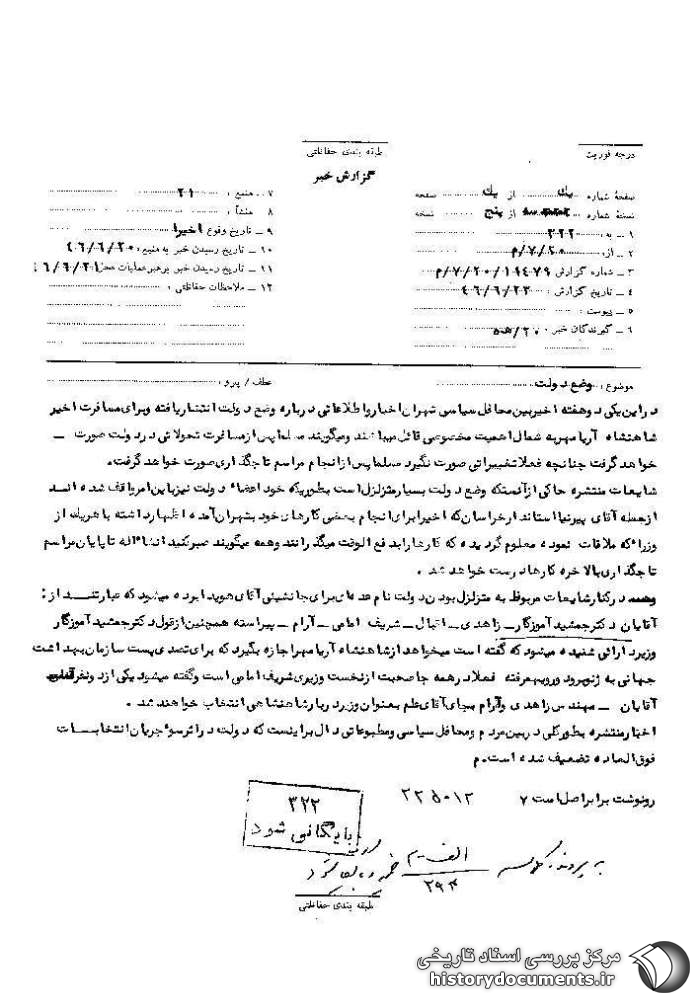 طبقه بندی حفاظتی
درجه فوریت
گزارش خبر
صفحهٔ شماره یک از یک صفحه
نسخهٔ شماره از پنج نسخه
۱ – به: ۳۲۲
۲ – از: ۲۰/۷/م
۳ – شماره گزارش ۱۱۴۷۹/۲۰/۷/م
۴ – تاریخ گزارش: ۴۶/۶/۲۳
۵ – پیوست:
۶ – گیرندگان خبر:
۷ – منبع: ۲۱
۸ – منشأ:
۹ – تاریخ وقوع اخیرا
۱۰ – تاریخ رسیدن خبر به منبع: ۴۶/۶/۲۰
۱۱ – تاریخ رسیدن خبر برهبر عملیات ۴۶/۶/۲۱
۱۲ – ملاحظات حفاظتی:
موضوع: وضع دولت
عطف / پیرو:
در این یکی دو هفته اخیر بین محافل سیاسی تهران اخبار و اطلاعاتی درباره وضع دولت انتشار یافته و برای مسافرت اخیر
شاهنشاه آریامهر به شمال اهمیت مخصوصی قائل میباشند و میگویند مسلما پس از مسافرت تحولاتی در دولت صورت –
خواهد گرفت چنانچه فعلا تغییراتی صورت نگیرد مسلما پس از انجام مراسم تاجگذاری صورت خواهد گرفت.
شایعات منتشره حاکی از آنستکه وضع دولت بسیار متزلزل است بطوریکه خود اعضاء دولت نیز باین امر واقف شده اند
از جمله آقای پیرنیا استاندار خراسان که اخیرا برای انجام بعضی کارهای خود بتهران آمده اظهار داشته با هریک از
وزرائکه ملاقات نموده معلوم گردیده که کارها را بدفع الوقت میگذرانند و همه میگویند صبر کنید انشاءاله تا پایان مراسم
تاجگذاری بالاخره کارها درست خواهد شد.
در کنار شایعات مربوط به متزلزل بودن دولت نام عده ای برای جانشینی آقای هویدا برده میشود که عبارتند از:
آقایان دکتر جمشید آموزگار – زاهدی – اقبال – شریف امامی – آرام – پیراسته همچنین از قول دکتر جمشید آموزگار
وزیر دارائی شنیده میشود که گفته است میخواهد از شاهنشاه آریامهر اجازه بگیرد که برای تصدی پست سازمان بهداشت
جهانی به ژنو برود رویهمرفته فعلا در همه جا صحبت از نخست وزیری شریف امامی است و گفته میشود یکی از دو نفر
آقایان – مهندس زاهدی و آرام بجای آقای علم بعنوان وزیر دربار شاهنشاهی انتخاب خواهند شد.
اخبار منتشره بطور کلی در بین مردم و محافل سیاسی و مطبوعاتی دال بر اینست که دولت در اثر سوء جریان انتخابات
فوق العاده تضعیف شده است. م
رونوشت برابر اصل است ۷ ۲۲۵۰۱۲
۳۲۲
بایگانی شود
به پرونده
الف – م
۲۹۳
طبقه بندی حفاظتی
مرکز بررسی اسناد تاریخی
historydocuments.ir